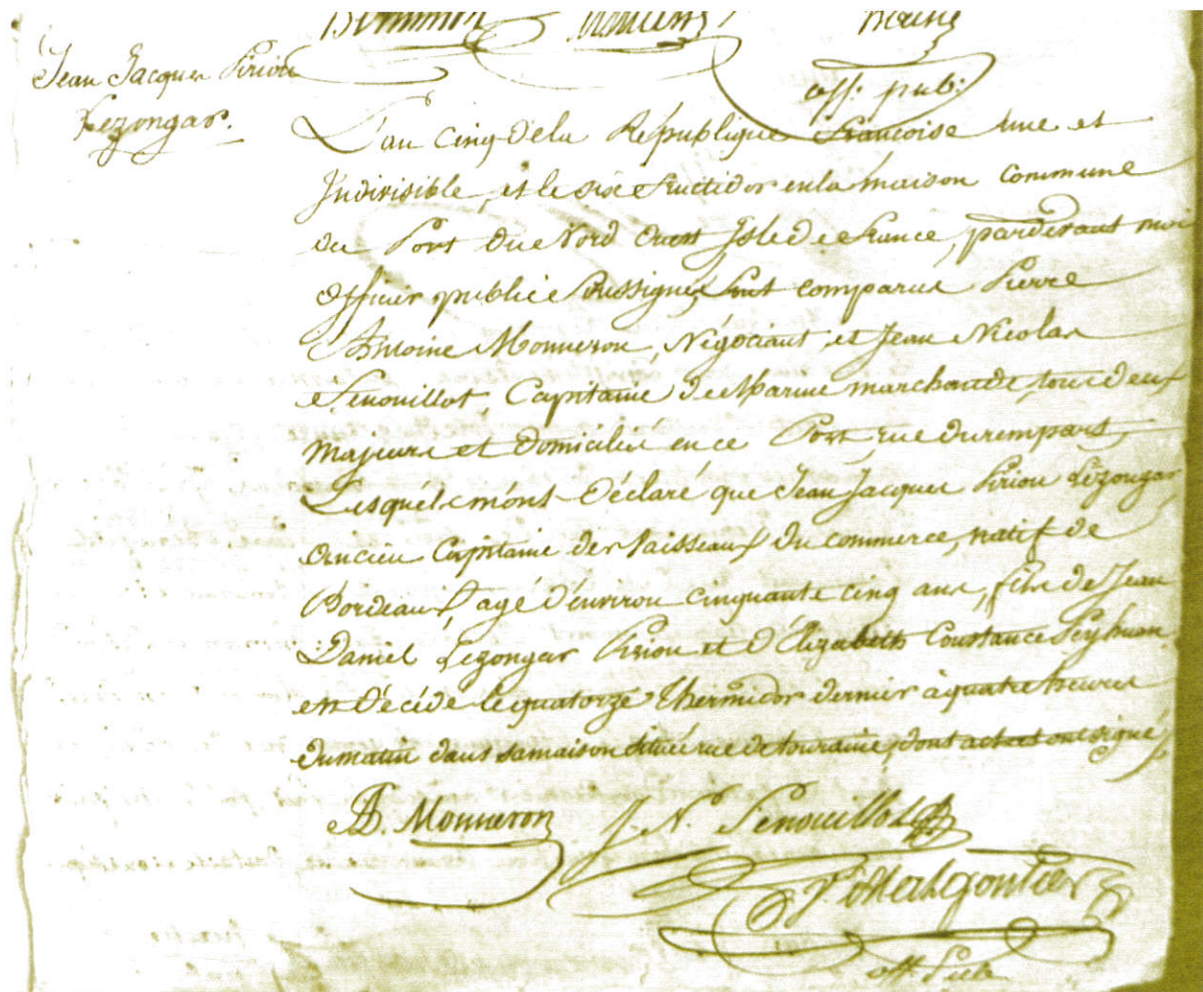 Jean Jacques Piriou
Lezongar.
off. pub.
L'an cinq de la République Francoise une et
Indivisible, et le six fructidor en la maison commune
du Port du Nord Ouest Isle de France, pardevant moi
officier public soussigné, sont comparus Pierre
Antoine Monneron, Négociant, et Jean Nicolas
Penouillot, Capitaine de Marine marchande, tous deux
majeurs et domiciliés en ce Port, rue du rempart,
Lesquels m'ont déclaré que Jean Jacques Piriou Lézongar
ancien Capitaine des Vaisseaux du commerce, natif de
Bordeaux, agé d'environ cinquante cinq ans, fils de Jean
Daniel Lézongar Piriou et d'Elizabeth Constance
est décédé le quatorze Thermidor dernier à quatre heures
du matin dans sa maison située rue de touraine, dont acte et ont signé,
Monneron J. N. Penouillot
off. Pub.